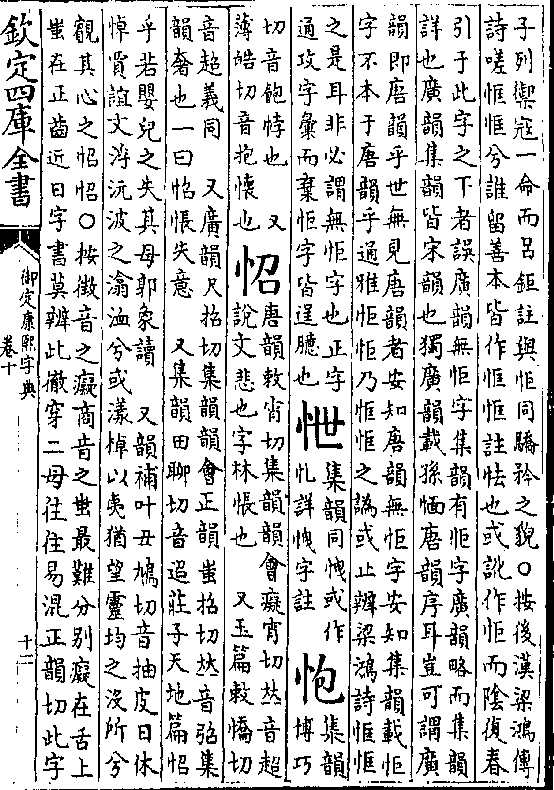 子列禦寇一命而吕鉅註與怇同驕矜之貌○按後漢梁鴻傳
詩嗟恇恇兮誰留善本皆作恇恇註怯也或訛作怇而陰復春
引于此字之下者誤廣韻無怇字集韻有怇字廣韻略而集韻
詳也廣韻集韻皆宋韻也獨廣韻載孫愐唐韻序耳豈可謂廣
韻即唐韻乎世無見唐韻者安知唐韻無怇字安知集韻載怇
字不本于唐韻乎通雅怇怇乃恇恇之譌或止辨梁鴻詩恇恇
之是耳非必謂無怇字也正字
通攻字彙而棄怇字皆逞臆也
怈
集韻同㤞或作
忚詳㤞字註
怉
集韻
博巧
切音飽悖也 又
薄皓切音抱懷也
怊
唐韻敕宵切集韻韻會癡宵切𠀤音超
說文悲也字林悵也 又玉篇敕憍切
音超義同 又廣韻尺招切集韻韻會正韻蚩招切𠀤音弨集
韻奢也一曰怊悵失意 又集韻田聊切音迢莊子天地篇怊
乎若嬰兒之失其母郭象讀 又韻補叶丑鳩切音抽皮日休
悼賈誼文渟沅波之滃洫兮或漾棹以夷猶望靈均之没所兮
觀其心之怊怊○按徵音之癡商音之蚩最難分别癡在舌上
蚩在正齒近日字書莫辨此徹穿二母往往易混正韻切此字
欽定四庫全書
御定康熙字典
卷十
十二